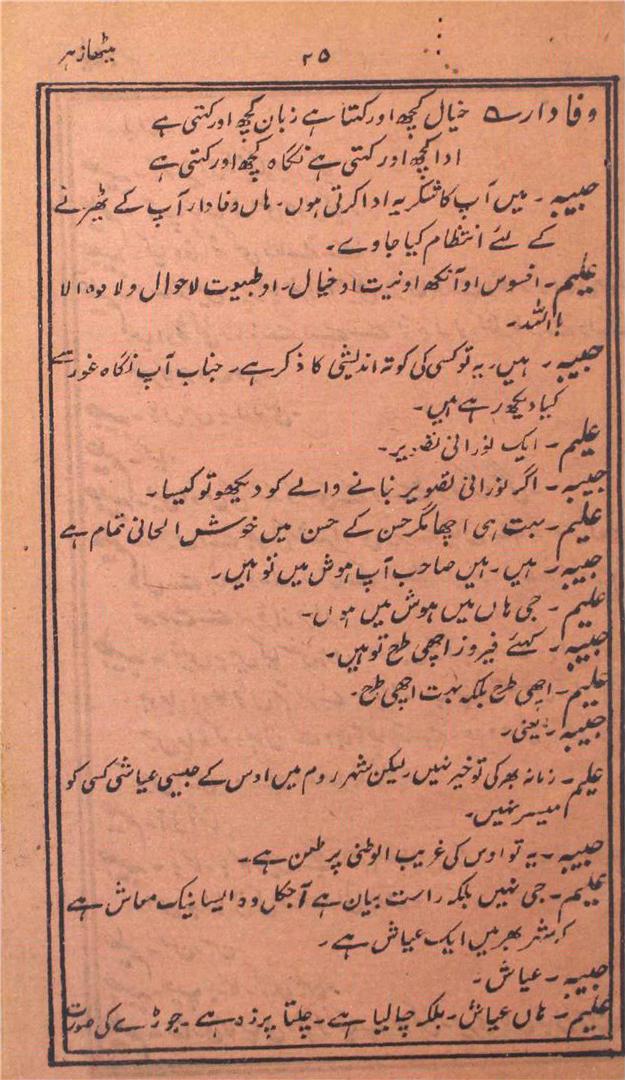 میٹھا زہر
۲۵
وفادار ؎ خیال کچھ اور کہتا ہے زبان کچھ اور کہتی ہے
ادا کچھ اور کہتی ہے نگاہ کچھ اور کہتی ہے
حبیبہ ۔ میں آپ کا شکریہ ادا کرتی ہوں۔ ہاں وفادار آپ کے ٹھہرنے
کے لئے انتظام کیا جاوے۔
علیم۔ افسوس او آنکھ او نیت او خیال۔ او طبیعت لاحوال ولا قوہ الا
باللہ۔
حبیبہ ۔ ہیں۔ یہ تو کسی کی کوتہ اندیشی کا ذکر ہے۔ جناب آپ نگاہ غور سے
کیا دیکھ رہے ہیں۔
علیم۔ ایک نورانی تصویر۔
حبیبہ ۔ اگر نورانی تصویر بنانے والے کو دیکھو تو کیسا۔
علیم۔ بہت ہی اچھا مگر حسن کے حسن میں خوش الحانی تمام ہے
حبیبہ ۔ ہیں۔ ہیں صاحب آپ ہوش میں تو ہیں۔
علیم ۔ جی ہاں میں ہوش میں ہوں۔
حبیبہ ۔ کہئے فیروز اچھی طرح تو ہیں۔
علیم۔ اچھی طرح بلکہ بہت اچھی طرح۔
حبیبہ ۔ یعنی۔
علیم ۔ زمانہ بھر کی تو خیر نہیں۔ لیکن شہر روم میں اوس کے جیسی عیاشی کسی کو
میسر نہیں۔
حبیبہ ۔ یہ تو اوس کی غریب الوطنی پر طعن ہے۔
علیم ۔ جی نہیں بلکہ راست بیان ہے آجکل وہ ایسا نیک معاش ہے
کہ شہر بھر میں ایک عیاش ہے۔
حبیبہ ۔ عیاش۔
علیم ۔ ہاں عیاش۔ بلکہ چالیا ہے۔ چلتا پرزہ ہے۔ جوڑے کی صورت